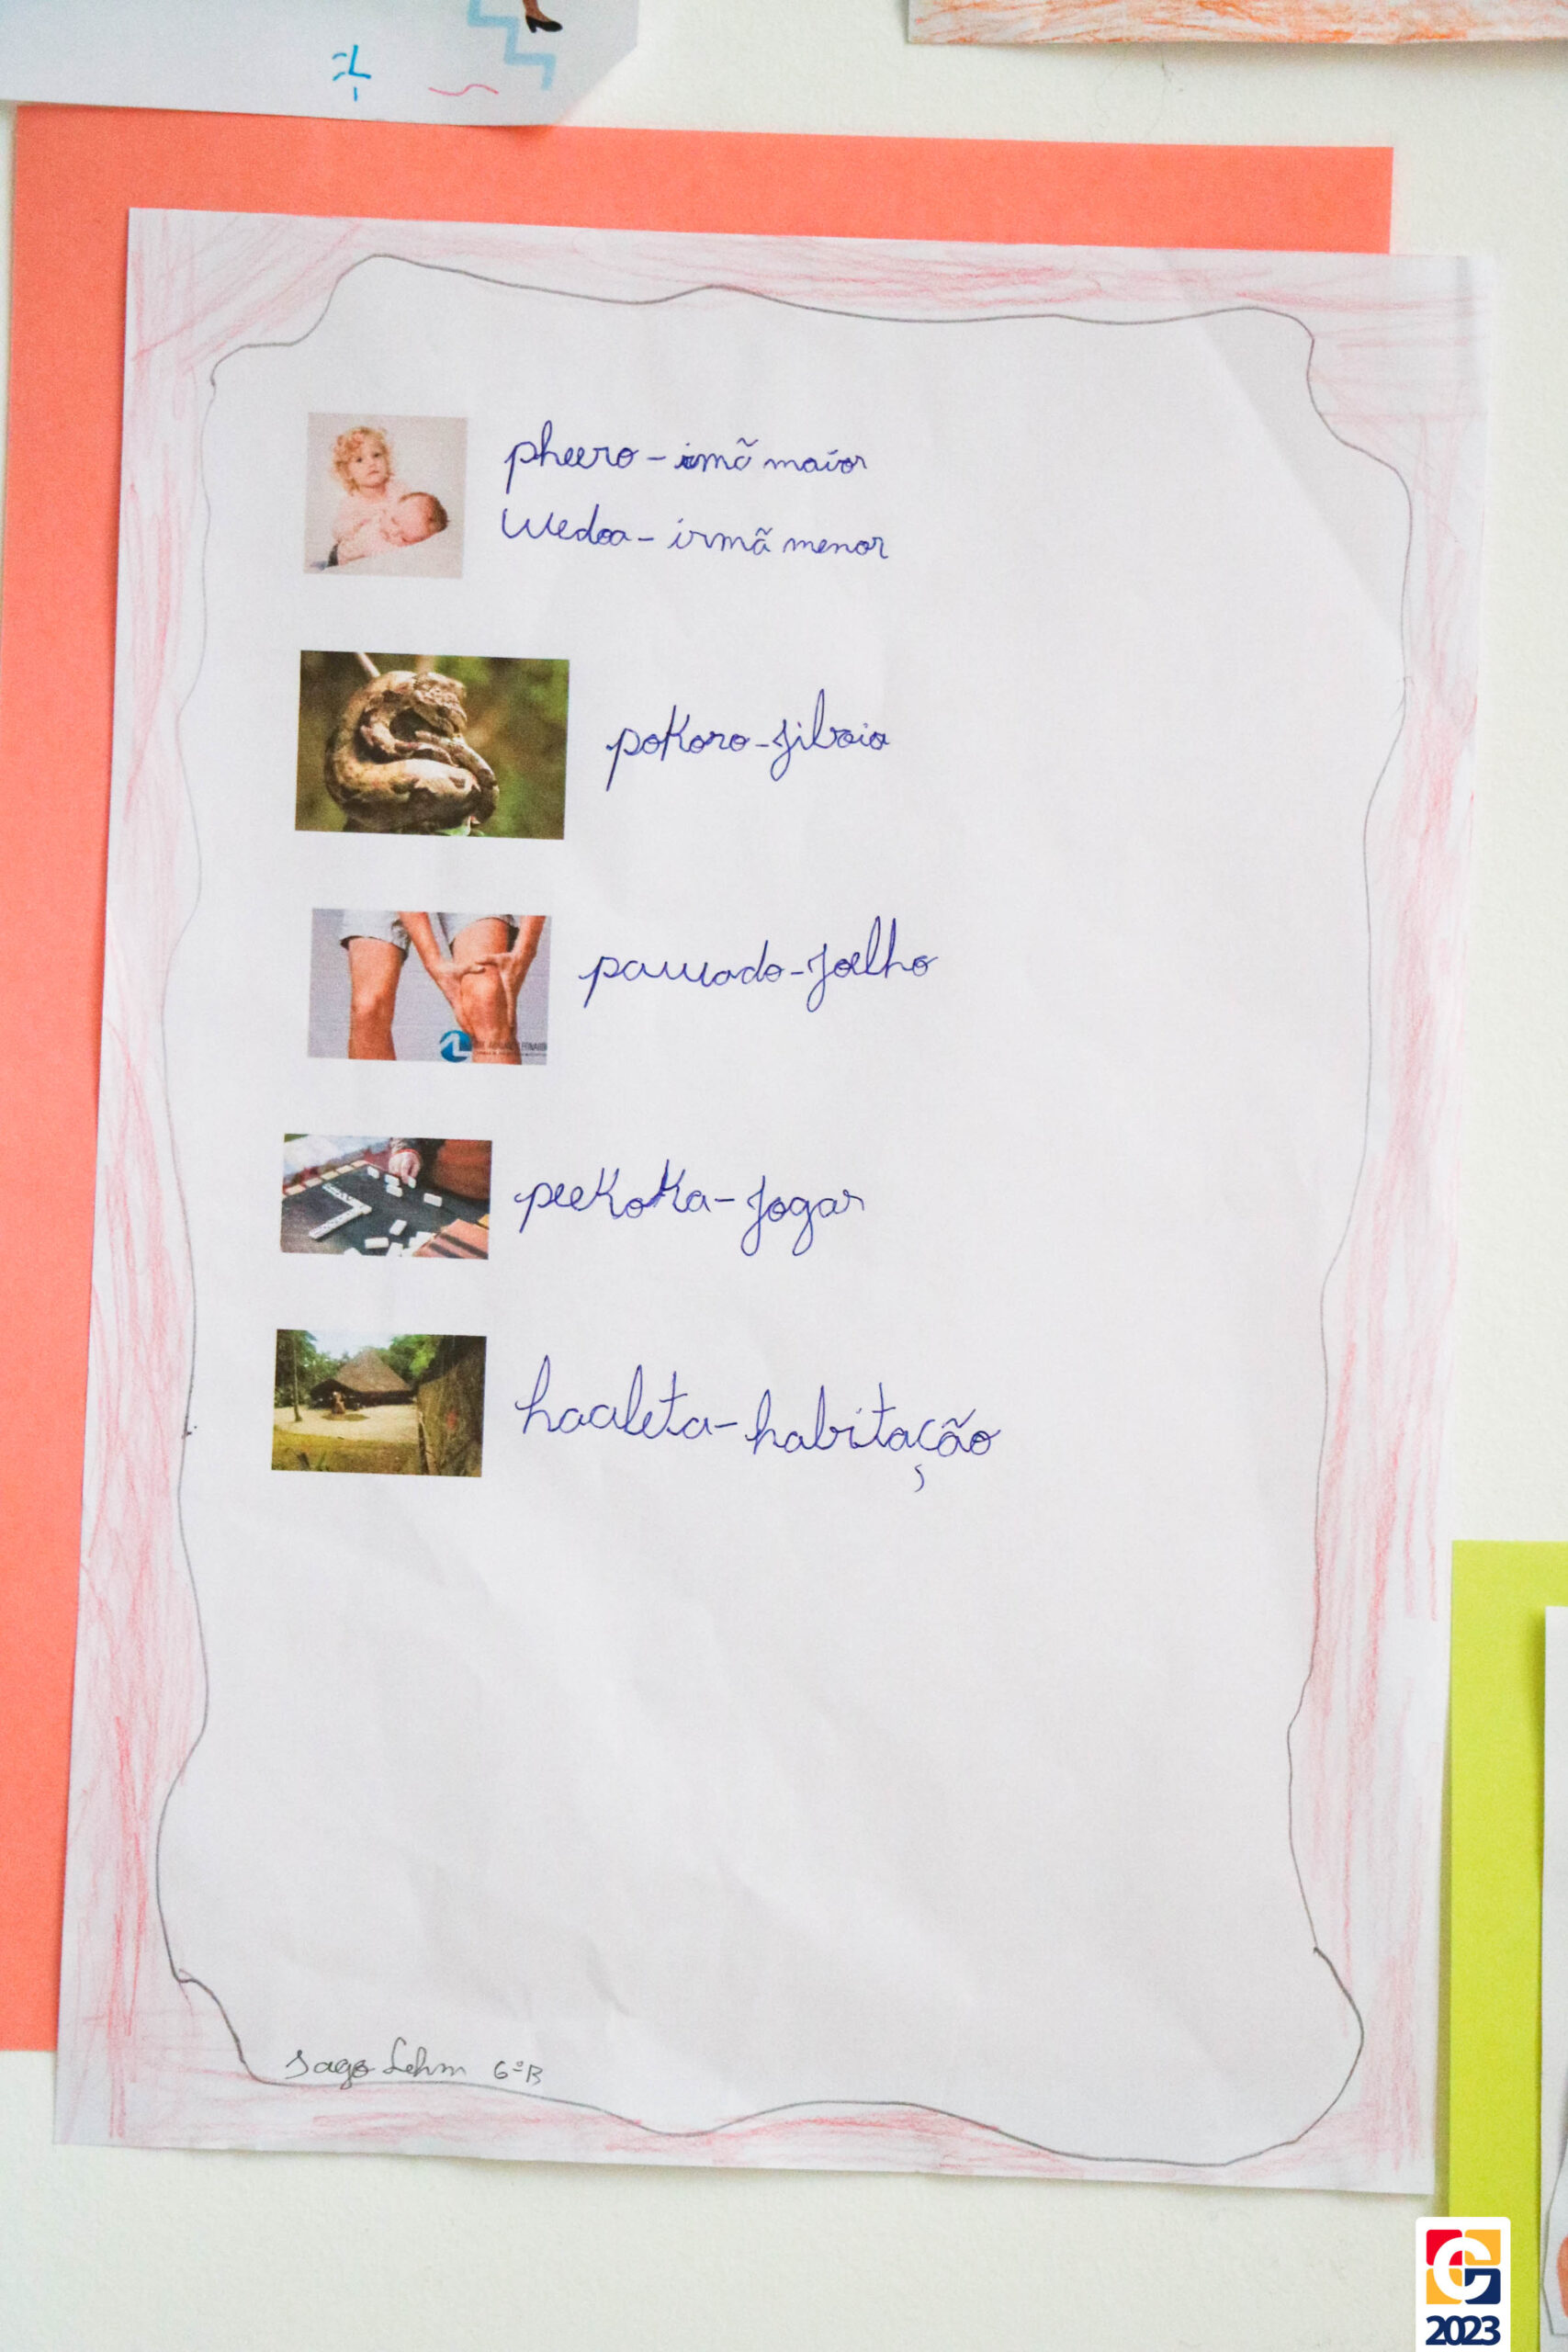 pheero - irmã maior
Wedoa - irmã menor
pokoro - jiboia
pawado - joelho
peekoka - jogar
haaleta - habitação
6ºB
2023